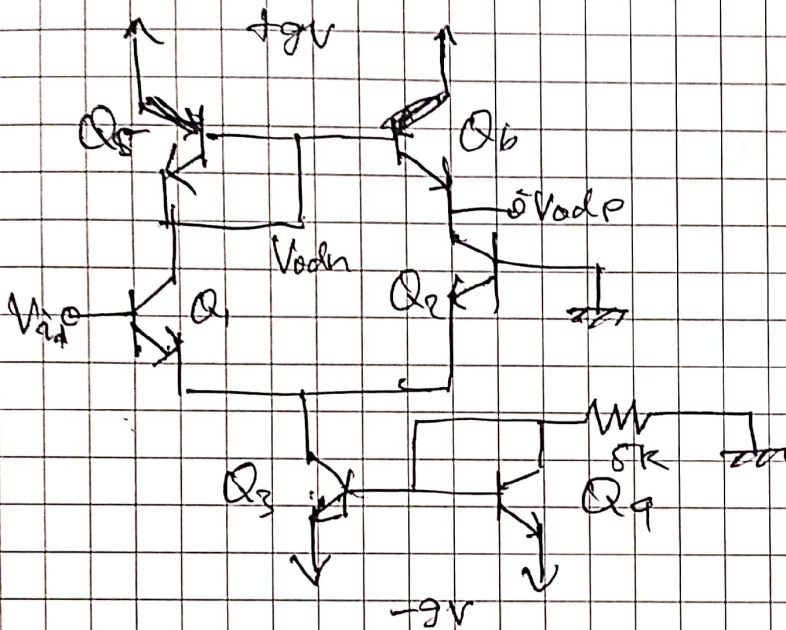 +9V
Q5
Q6
Vodp
Vodn
Vid
Q1
Q2
5K
Q3
Q4
-9V